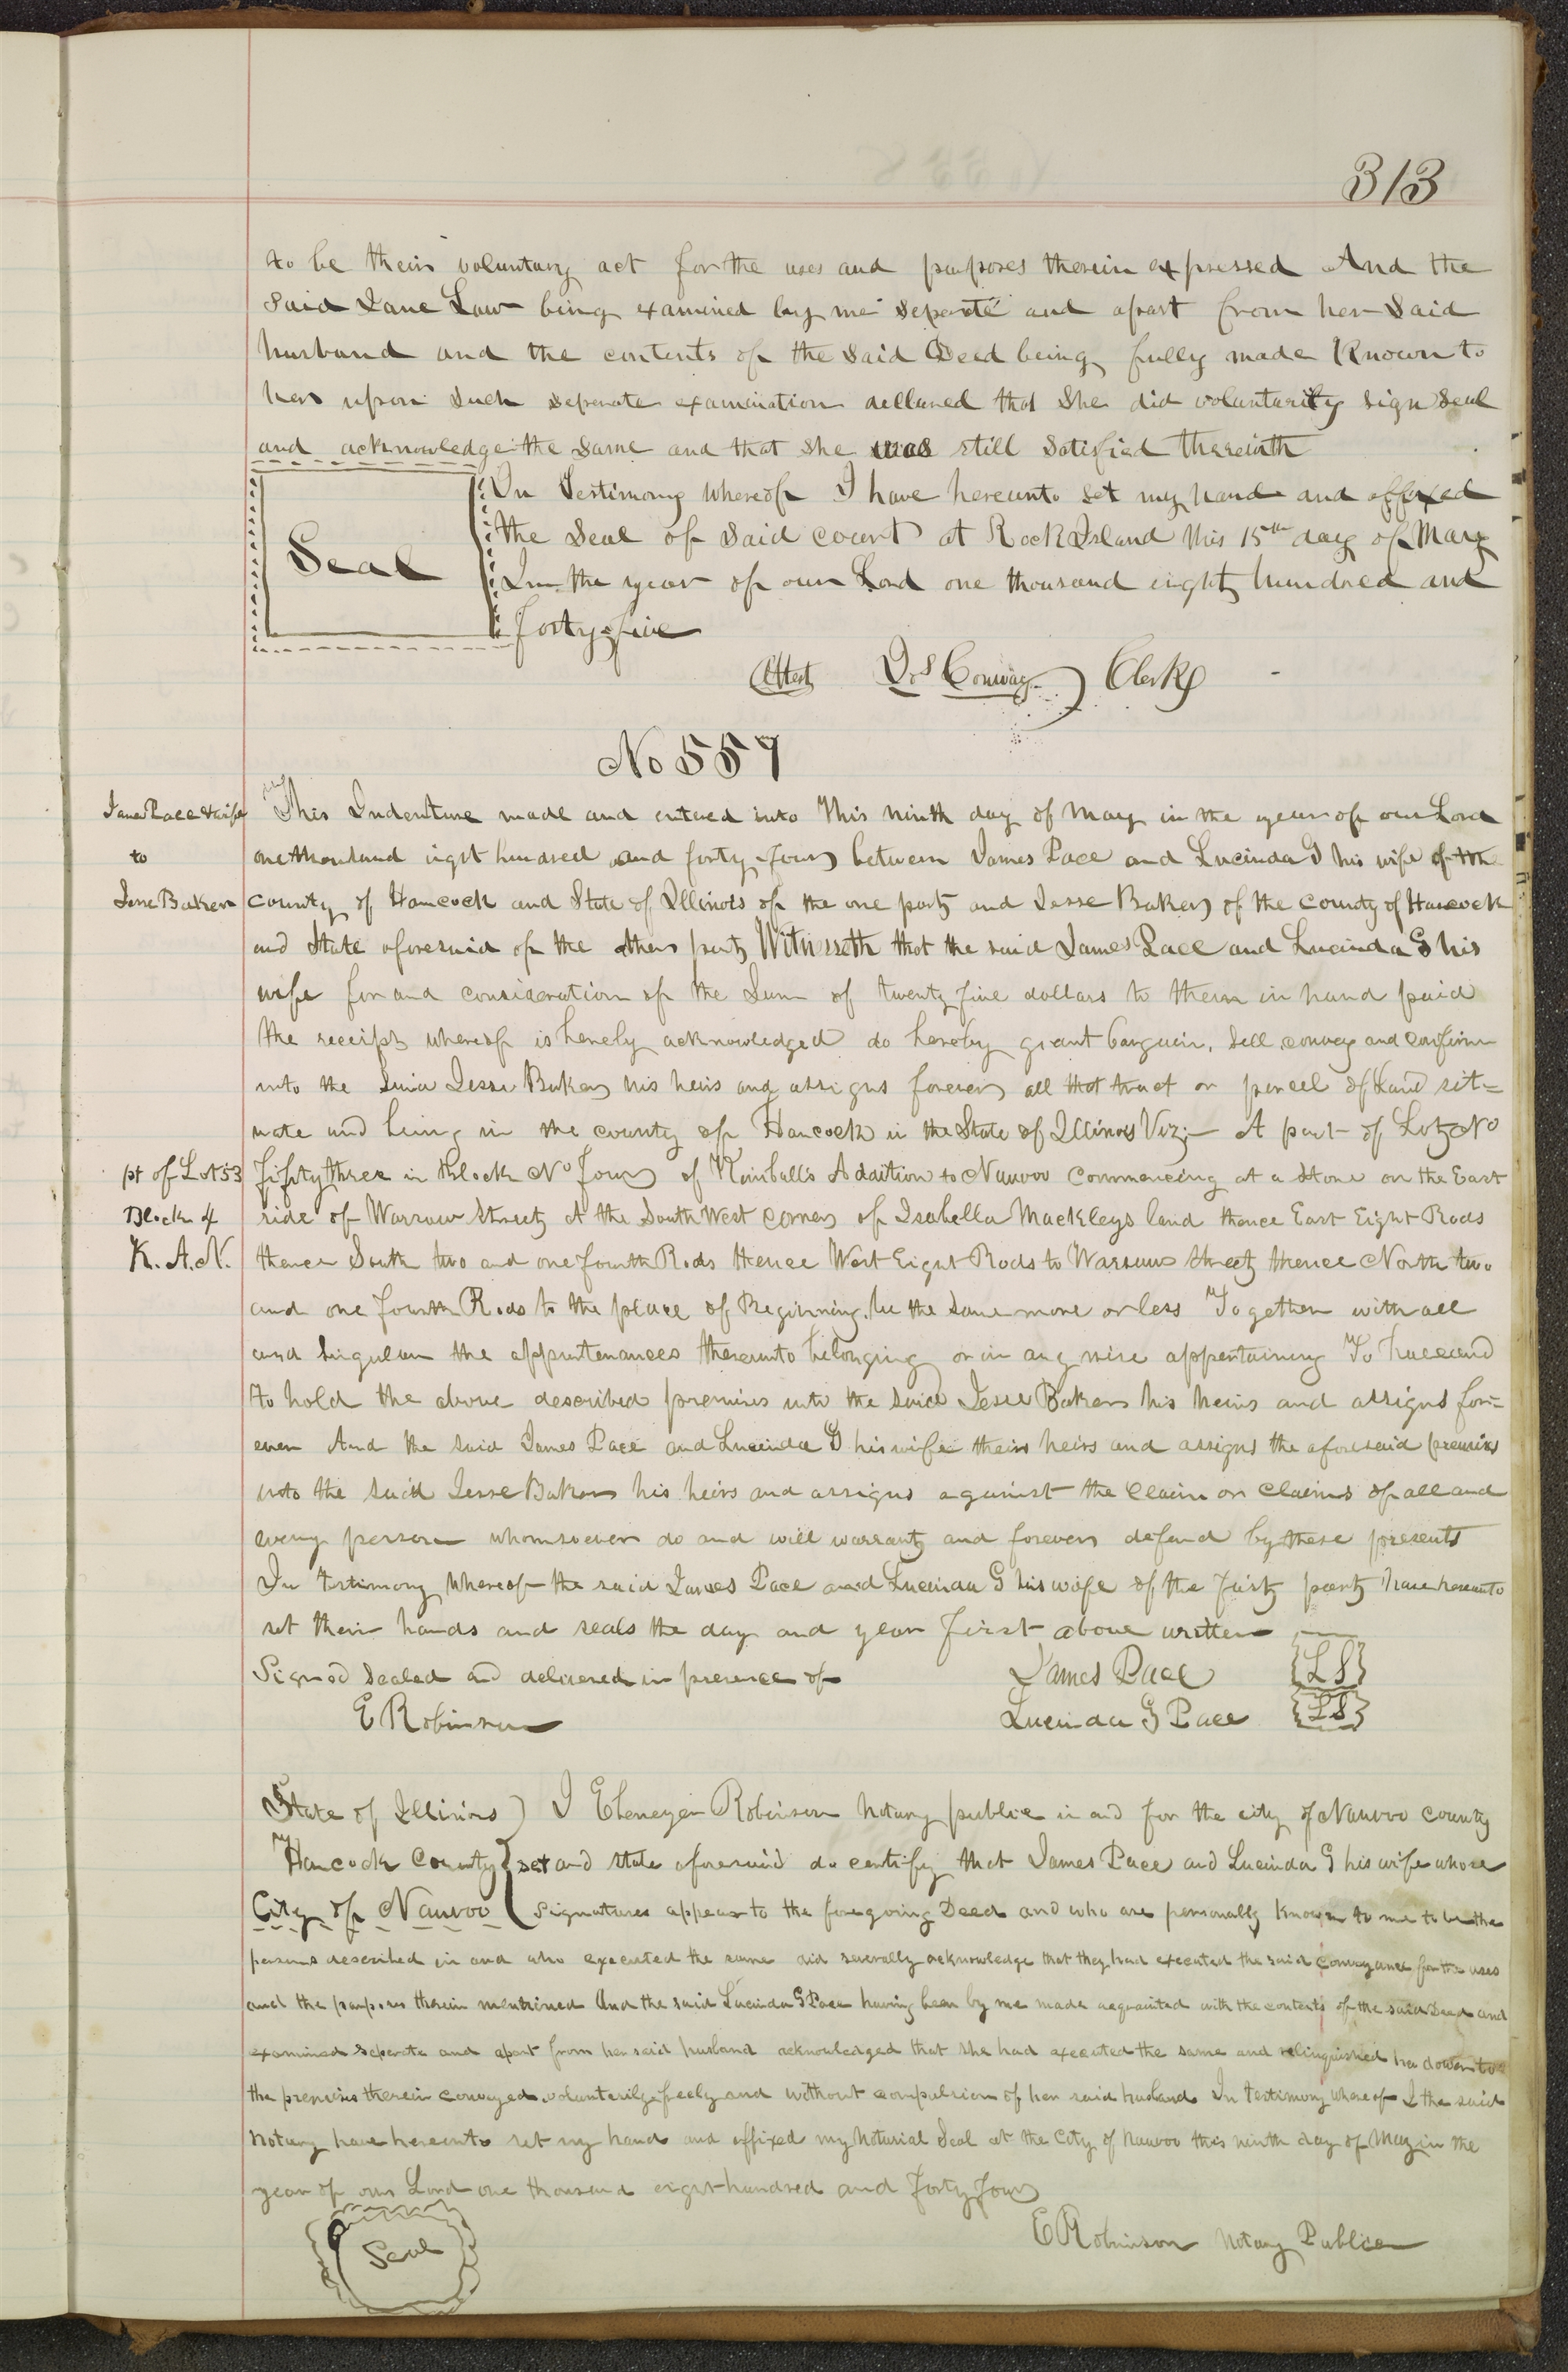 313
to be their voluntary act for the uses and purposes therein expressed And the
said Jane Law being examined by me seperate and apart from her said
husband and the contents of the said Deed being fully made Known to
her upon such seperate examination declared that she did voluntarily sign seal
and acknowledge the same and that she was still satisfied therewith
In Testimony whereof I have hereunto set my hand and affixed
the seal of said court at Rock Island this 15th day of May
Seal
In the year of our Lord one thousand eight hundred and
forty five
Attest Jos Conway Clerk
No 557
James Pace & wife
to
Jesse Baker
This Indenture made and entered into This ninth day of May in the year of our Lord
one thousand eight hundred and forty four between James Pace and Lucinda G his wife of the
county of Hancock and State of Illinois of the one part and Jesse Baker of the county of Hancock
and State aforesaid of the other part Witnesseth that the said James Pace and Lucinda G his
wife for and consideration of the Sum of twenty five dollars to them in hand paid
the receipt whereof is hereby acknowledged do hereby grant bargain, sell convey and confirm
unto the said Jesse Baker his heirs and assigns forever all that tract or parcel of Land sit=
uate and being in the county of Hancock in the State of Illinois Viz:— A part of Lot No
pt of Lot 53
Block 4
K. A. N.
fifty three in Block No four of Kimball's Addition to Nauvoo Commencing at a stone on the East
side of Warsaw Street at the South West corner of Isabella Mackleys land thence East Eight Rods
thence South two and one fourth Rods thence West Eight Rods to Warsaw street thence North two
and one fourth Rods to the place of Beginning, be the same more or less Together with all
and singular the appurtenances thereunto belonging or in any wise appertaining To have and
to hold the above described premises unto the said Jesse Baker his heirs and assigns for=
ever And the said James Pace and Lucinda G his wife their heirs and assigns the aforesaid premises
unto the said Jesse Baker his heirs and assigns against the claim or claims of all and
every person whomsoever do and will warrant and forever defend by these presents
In testimony whereof the said James Pace and Lucinda G his wife of the first part have hereunto
set their hands and seals the day and year first above written
Signed Sealed and delivered in presence of James Pace {LS}
E Robinson Lucinda G Pace {LS}
State of Illinois ) I Ebenezer Robinson Notary public in and for the city of Nauvoo county
Hancock County } set and state aforesaid do certify that James Pace and Lucinda G his wife whose
City of Nauvoo ( signatures appear to the foregoing Deed and who are personally known to me to be the
persons described in and who executed the same did severally acknowledge that they had executed the said conveyance for the uses
and the purposes therein mentioned And the said Lucinda G Pace having been by me made acquainted with the contents of the said Deed and
examined seperate and apart from her said husband acknowledged that she had executed the same and relinquished her dower to
the premises therein conveyed voluntarily freely and without compulsion of her said husband In testimony whereof I the said
Notary have hereunto set my hand and affixed my Notarial Seal at the City of Nauvoo this ninth day of May in the
year of our Lord one thousand eight hundred and forty four
Seal
E Robinson Notary Public